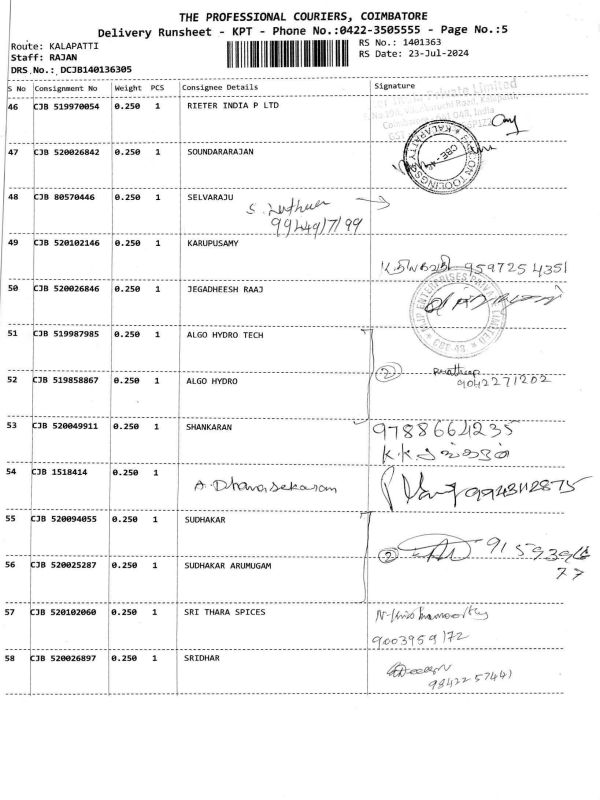 THE PROFESSIONAL COURIERS, COIMBATORE
Delivery Runsheet - KPT - Phone No.:0422-3505555 - Page No.:5
Route: KALAPATTI
Staff: RAJAN
DRS No.: DCJB140136305
RS No.: 1401363
RS Date: 23-Jul-2024
S No Consignment No Weight PCS Consignee Details Signature
46 CJB 519970054 0.250 1 RIETER INDIA P LTD
47 CJB 520026842 0.250 1 SOUNDARARAJAN
48 CJB 80570446 0.250 1 SELVARAJU
49 CJB 520102146 0.250 1 KARUPUSAMY
9597254351
50 CJB 520026846 0.250 1 JEGADHEESH RAAJ
51 CJB 519987985 0.250 1 ALGO HYDRO TECH
52 CJB 519858867 0.250 1 ALGO HYDRO
2
9042271202
53 CJB 520049911 0.250 1 SHANKARAN
9788664235
54 CJB 1518414 0.250 1
A. Dhanasekaran
9943112875
55 CJB 520094055 0.250 1 SUDHAKAR
2
56 CJB 520025287 0.250 1 SUDHAKAR ARUMUGAM
77
57 CJB 520102060 0.250 1 SRI THARA SPICES
9003959172
58 CJB 520026897 0.250 1 SRIDHAR
9842257441